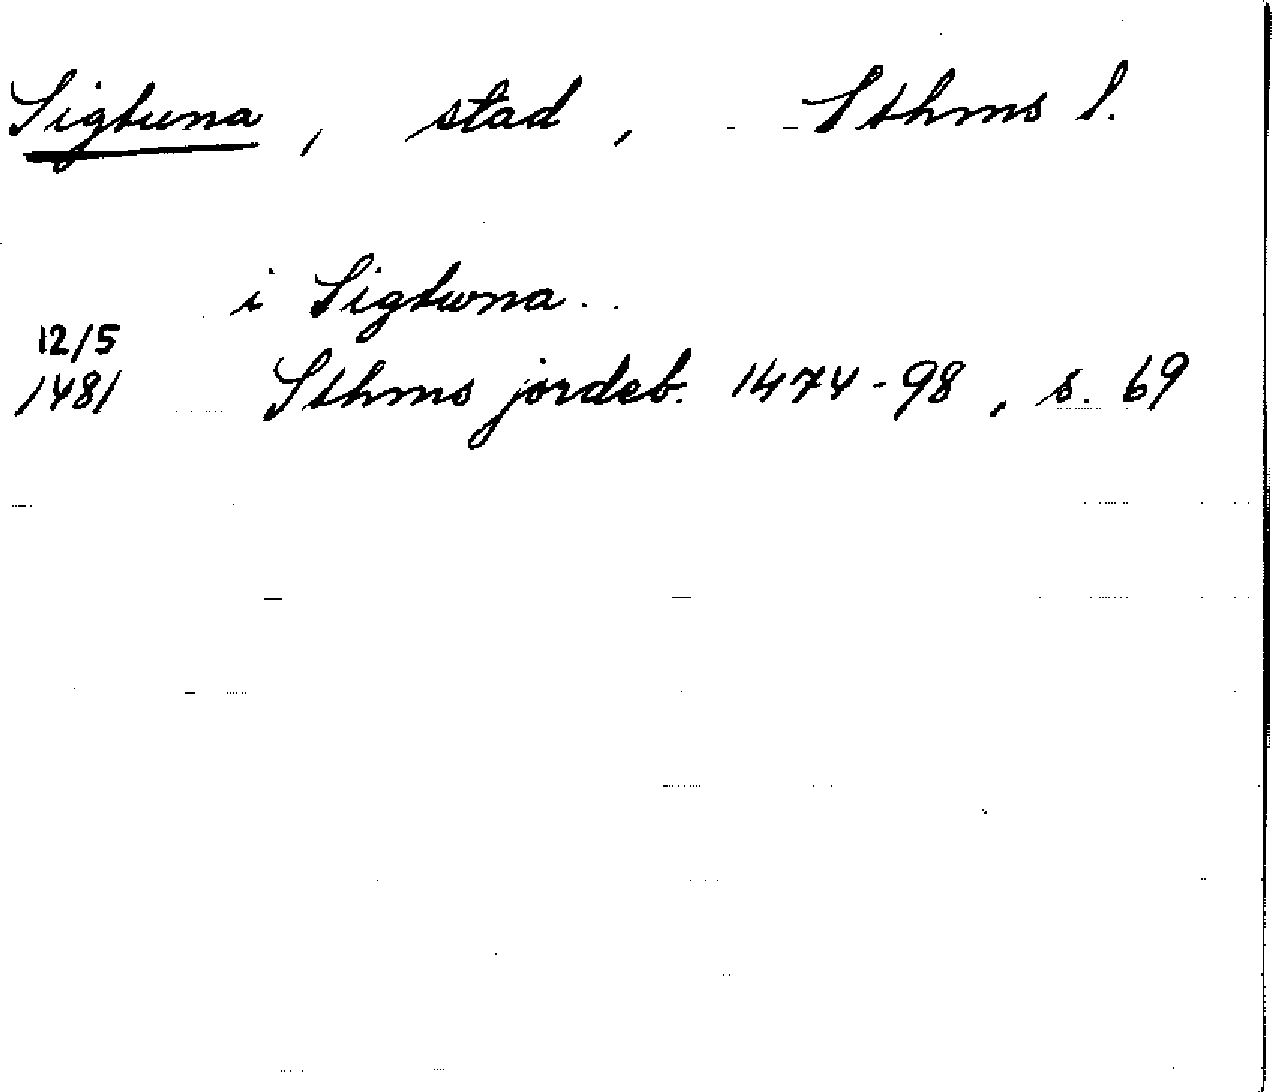 Sigtuna, stad, Sthms l.
i Sigtwna.
12/5
1481 Sthms jordeb. 1474-98, s. 69